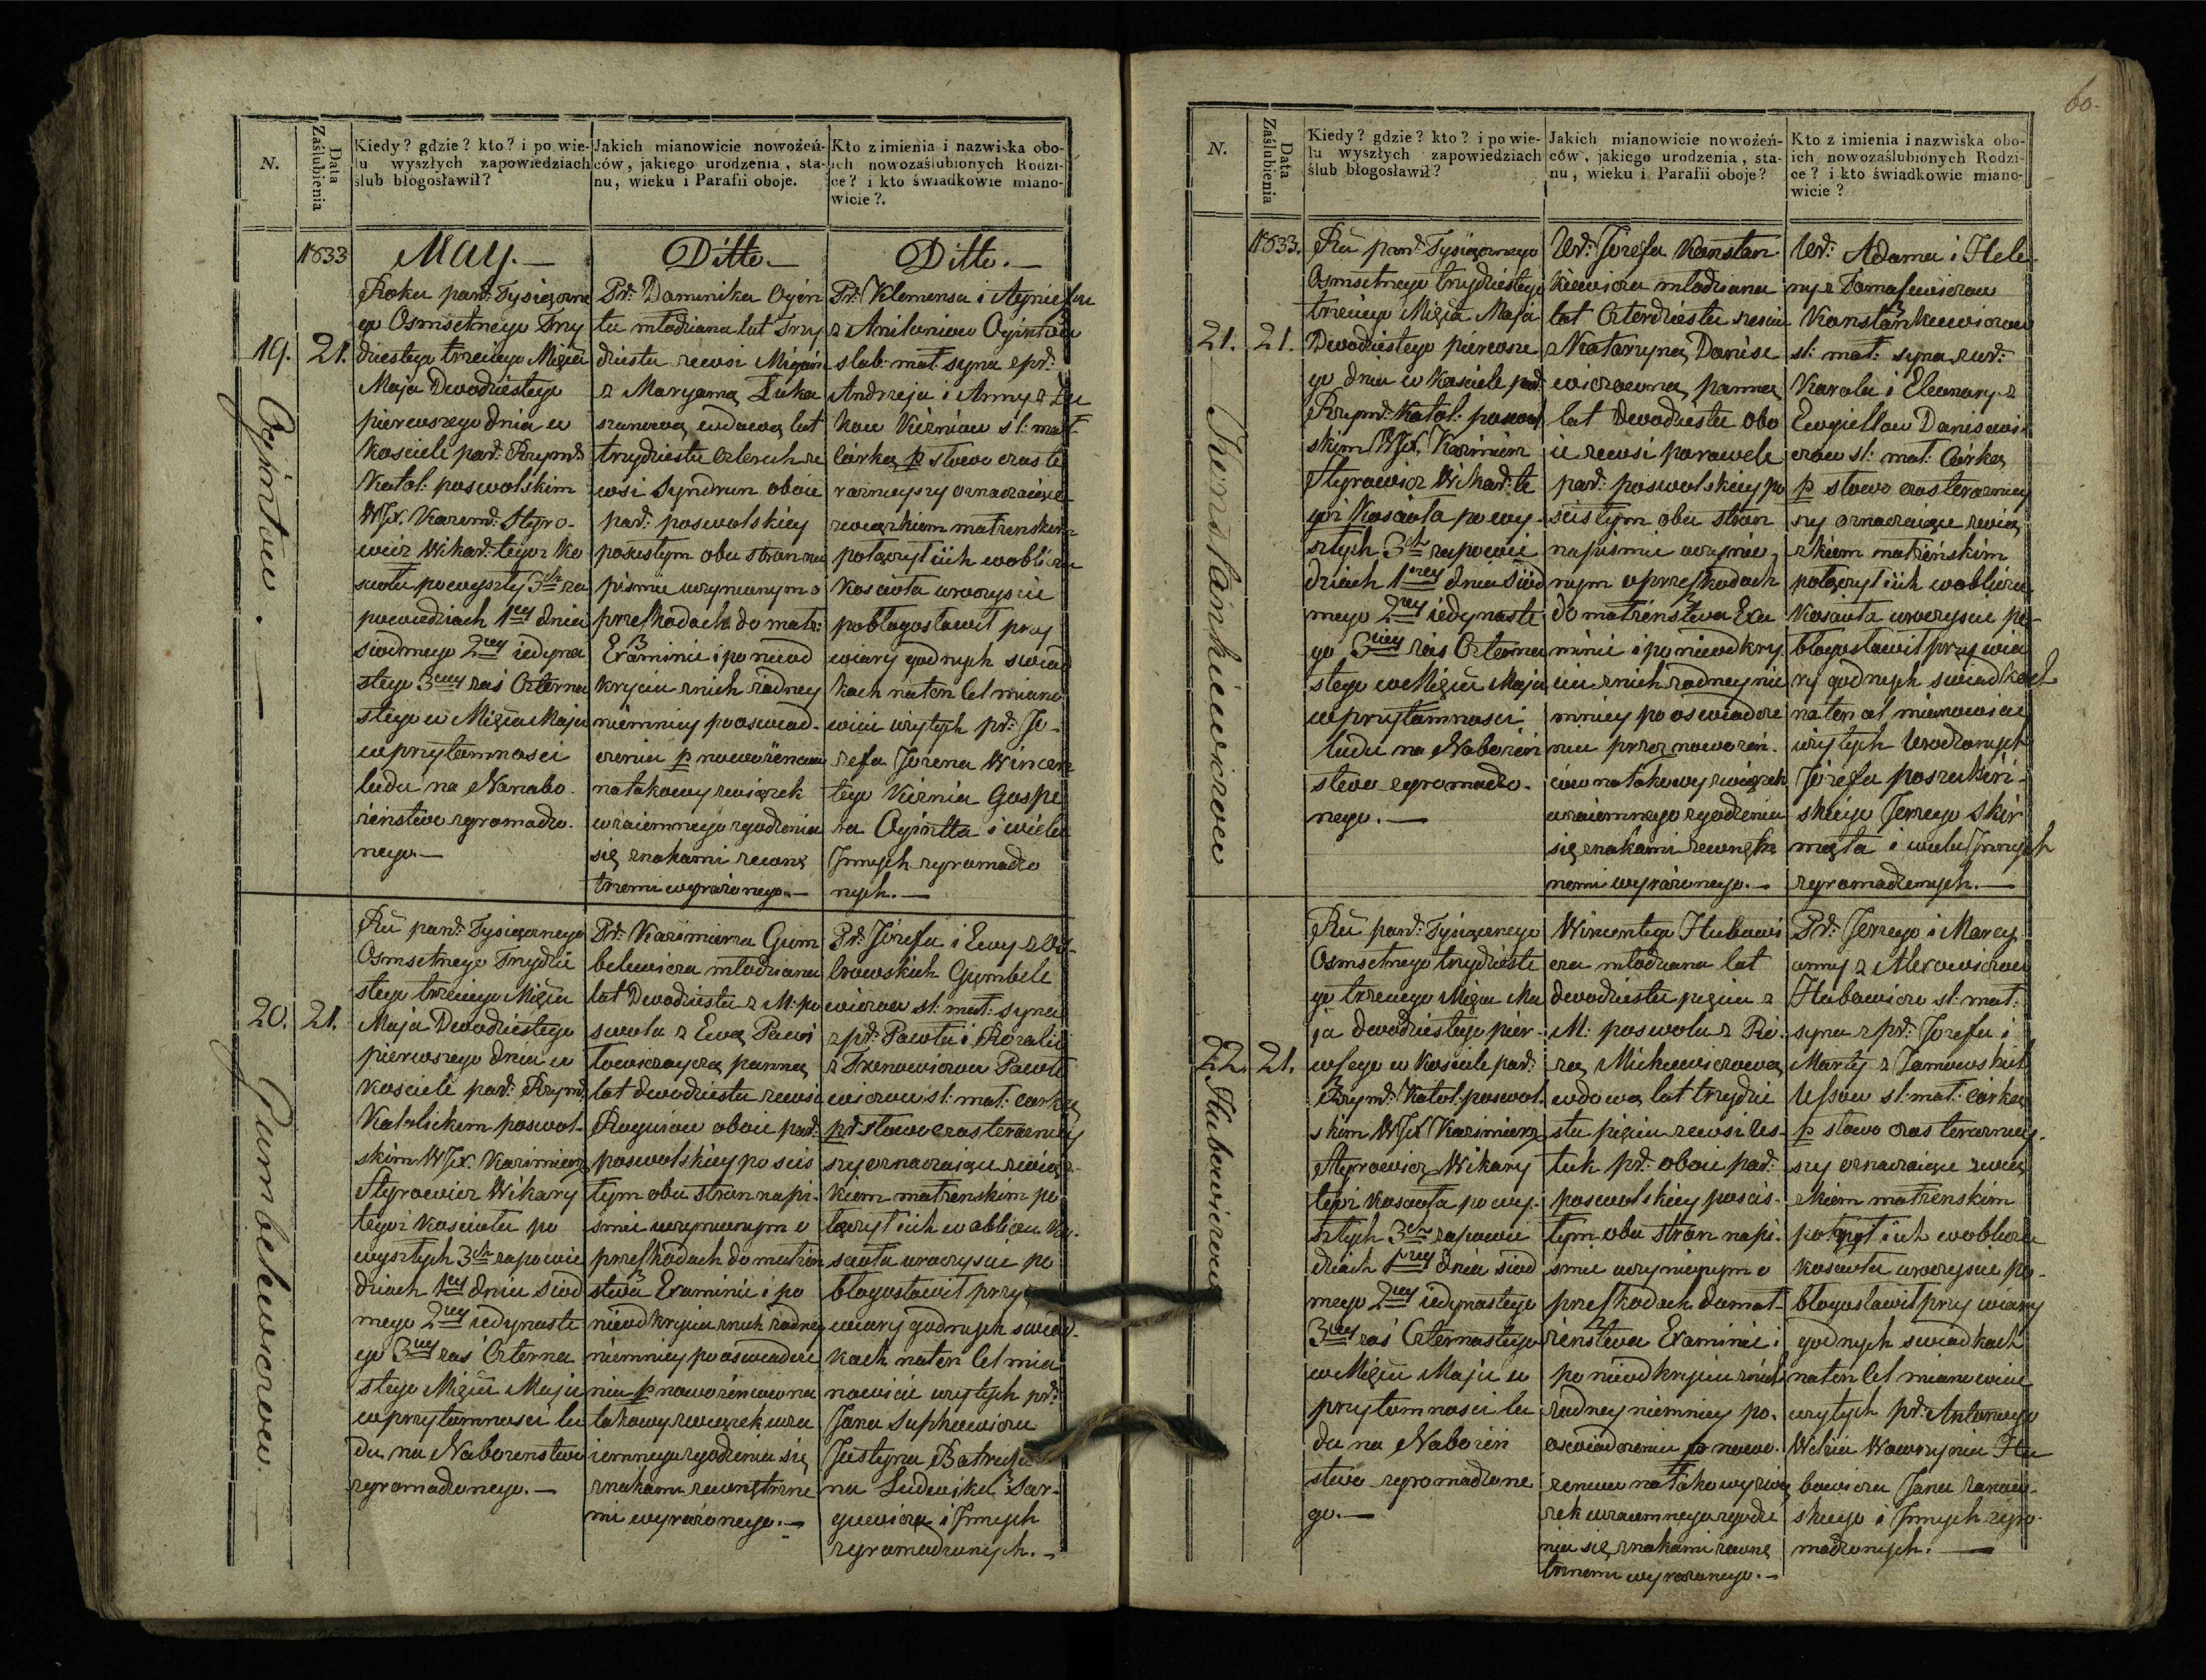 N.
Data Zaślubienia
Kiedy? gdzie? kto? i po wie-
lu wyszłych zapowiedziach
ślub błogosławił?
Jakich mianowicie nowożeń-
ców, jakiego urodzenia, sta-
nu, wieku i Parafii oboje.
Kto z imienia i nazwiska obo-
ich nowozaślubionych Rodzi-
ce? i kto świadkowie miano-
wicie?.
1833
May.—
Ditto.—
Ditto.—
19.
21.
Ogintow.—
Roku pań: Tysiączne
go Osmsetnego Trzy
dziestego trzeciego Mięcia
Maja Dwódziestego
pierwszego dnia w
Kościele par: Rzym:
Katol: poswolskim
WJX. Kazim: Styro-
wicz Wikar: tegoż Ko
ścioła po wyszły 3ch za
powiedziach 1ey dnia
siódmego 2ey iedyna
stego 3ciey zaś Czterna
stego w Mięcia Maju
w przytomności
ludu na Nanabo.
żeństwo zgromadzo.
nego.—
Pr: Dominika Ogin
ta młodziana lat Trzy
dziestu zewsi
z Maryanną Łuka
szunową wdową lat
trzydziestu czterech ze
wsi Syndrun oboie
par: poswolskiey
po ścisłym obu stron na
piśmie uczynionym o
przeszkodach do matż:
Examinie i po nieod
kryciu znich żadney
niemniey po oświad-
czeniu p nowożeńców
na takowy związek
wzaiemnego zgodzenia
się znakami zewnę
trznemi wyrażonego.—
Pr: Klemensa i Agnieszki
z Anilaniow Ogintow
ślub: mał: syna z pr:
Andrzeja i Anny z Żu
kow Kiźniow śl: mał:
Córką p słowo czas te
raźnieyszy oznaczaiące
związkiem małżeńskim
połączył iich wobliczu
Kościoła uroczyście
pobłogosławił przy
wiary godnych świad
kach na ten Cel miano
wicie użytych pr: Jó-
zefa Jozena Wincen
tego Kiźnia Gaspe
ra Ogintta i wielu
Innych zgromadzo
nych.—
20.
21.
Gumbelewiczow.—
Ru pań: Tysiącznego
Osmsetnego Trzydzie
stego trzeciego Mięcia
Maja Dwódziestego
pierwszego dnia w
Kościele par: Rzym:
Katolickim poswol-
skim WJX. Kazimierz
Styrowicz Wikary
tegoż Kościoła po
wyszłych 3ch zapowie
dziach 1ey dnia siód
mego 2ey iedynaste
go 3ciey zaś Czterna
stego Mięcia Maju
w przytomności lu
du na Nabożenstwo
zgromadzonego.—
Pr: Kazimierza Gum
belewicza młodziana
lat Dwódziestu z M: po
swola z Ewą Pawi
łowiczaycą panną
lat dwódziestu zewsi
Roguiow oboie par:
poswolskiey po ścis
łym obu stron napi-
śmie uczynionym o
przeszkodach do małżeń
stwa Examinie i po
nieodkryciu znich żadney
niemniey po oświadcze
niu p nowożeńców na
takowy związek wza
iemnego zgodzenia się
znakami zewnętrzne
mi wyrażonego.—
Pr: Józefa i Ewy
browskich Gumbele
wiczow śl: mał: syna
z pr: Pawła i Rozalii
z Trenowiczow Pawił
owiczow śl: mał: córką
pr słowo czas teraźniey
szy oznaczaiące związ-
kiem małżenskim po
łączył iich w obliczu Ko-
ścioła uroczyście po
błogosławił przy
wiary godnych świad-
kach na ten Cel mia
nowicie użytych pr:
Jana
Justyna
na Ludwika Sar-
guewicza i Innych
zgromadzonych.—
60.
N.
Data Zaślubienia
Kiedy? gdzie? kto? i po wie-
lu wyszłych zapowiedziach
ślub błogosławił?
Jakich mianowicie nowożeń-
ców, jakiego urodzenia, sta-
nu, wieku i Parafii oboje?
Kto z imienia i nazwiska obo-
ich nowozaślubionych Rodzi-
ce? i kto świadkowie miano-
wicie?
1833.
21.
21.
Konstankiewiczow
Ru pań: Tysiącznego
Osmsetnego trzydziestego
trzeciego Mięcia Maja
Dwódziestego pierwsze
go dnia w Kościele par:
Rzym: Katol: poswol
skim WJX. Kazimierz
Styrowicz Wikar: te
goż Kościoła po wy-
szłych 3ch zapowie
dziach 1szey dnia siód
mego 2ey iedynaste
go 3ciey zaś Czterna
stego w Mięciu Maju
w przytomności
ludu na Nabożeń
stwo zgromadzo-
nego.—
Ur: Józefa Konstan-
kiewicza młodziana
lat Czterdziestu sześciu
z Katarzyną Danise
wiczowną panną
lat dwodziestu obo
ie zewsi porawele
par: poswolskiey po
ścisłym obu stron
napiśmie uczynio-
nym o przeszkodach
do małżeństwa Exa
minie i po nieodkry
ciu znich żadney nie
mniey po oświadcze
niu przez nowożeń-
ców na takowy związek
wzaiemnego zgodzenia
się znakami zewnętrz
nemi wyrażonego.—
Ur: Adama i Hele-
ny z Tomaszewiczow
Konstankiewiczow
śl: mał: syna z ur:
Karola i Eleonory z
Ewgiellow Danisewi-
czow śl: mał: Córką
p słowo czas teraźniey
szy oznaczaiące zwią
zkiem małżeńskim
połączył iich wobliczu
Kościoła uroczyście po-
błogosławił przy wia
ry godnych świadkach
na ten cel mianowicie
użytych Urodzonych
Józefa poszukiń-
skiego Jerzego Skir
męta i wielu Innych
zgromadzonych.—
22.
21.
Hubowiczow
Ru pań: Tysiącznego
Osmsetnego trzydzieste
go trzeciego Mięcia Ma
ja dwódziestego pier-
wszego w Kościele par:
Rzym: Katol: poswol
skim WJX Kazimierz
Styrowicz Wikary
tegoż Kościoła po wy-
szłych 3ch zapowie
dziach 1szey dnia siód
mego 2ey iedynastego
3ciey zaś Czternastego
w Mięciu Maju w
przytomności lu
du na Nabożeń
stwo zgromadzone
go.—
Wincentego Hubowi
cza młodziana lat
dwodziestu pięciu z
M: poswola z Ró-
zą Michniewiczową
wdową lat trzydzie
stu pięciu zewsi Us-
tuk pr: oboie par:
poswolskiey po ścis-
łym obu stron napi-
śmie uczynionym o
przeszkodach do mał-
żeństwa Examinie i
po nieodkryciu znich
żadney niemniey po-
oświadczeniu p nowo-
żeńców na takowy zwią
zek wzaiemnego zgodze
nia się znakami zewnę
trznemi wyrażonego.—
Pr: Jerzego i Mary
anny z Alexowiczow
Hubowiczow śl: mał:
syna z pr: Józefa i
Marty z Janowskich
Ussow śl: mał: córką
p słowo czas teraźniey-
szy oznaczaiące zwią
zkiem małżenskim
połączył ich wobliczu
Kościoła uroczyście po-
błogosławił przy wiary
godnych świadkach
na ten Cel mianowicie
użytych pr: Antoniego
Wawrzyńca Hu
bowicza Jana
skiego i Innych zgro-
madzonych.—